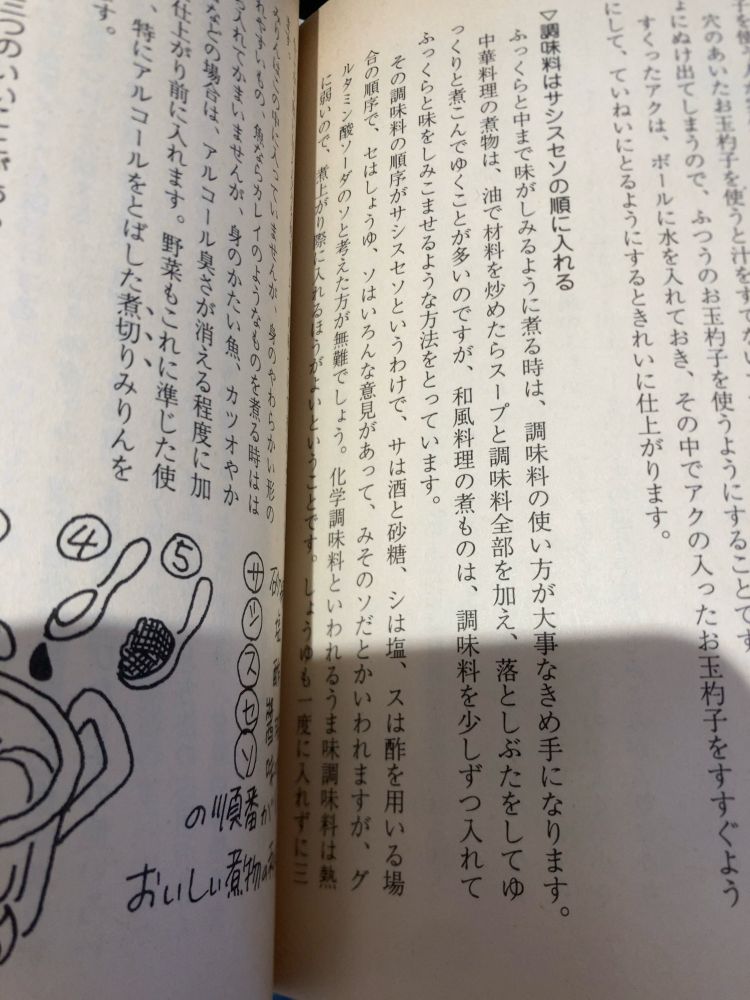 穴のあいたお玉杓子を使うと汁をすで
にぬけ出てしまうので、ふつうのお玉杓子を使うようにすることです
すくったアクは、ボールに水を入れておき、その中でアクの入ったお玉杓子をすすぐよう
にして、ていねいにとるようにするときれいに仕上がります。
▽調味料はサシスセソの順に入れる
ふっくらと中まで味がしみるように煮る時は、調味料の使い方が大事なきめ手になります。
中華料理の煮物は、油で材料を炒めたらスープと調味料全部を加え、落としぶたをしてゆ
っくりと煮こんでゆくことが多いのですが、和風料理の煮ものは、調味料を少しずつ入れて
ふっくらと味をしみこませるような方法をとっています。
その調味料の順序がサシスセソというわけで、サは酒と砂糖、シは塩、スは酢を用いる場
合の順序で、セはしょうゆ、ソはいろんな意見があって、みそのソだとかいわれますが、グ
ルタミン酸ソーダのソと考えた方が無難でしょう。化学調味料といわれるうま味調味料は熱
に弱いので、煮上がり際に入れるほうがよいということです。しょうゆも一度に入れずに三
みりんはこの中に入っていませんが、身のやわらかい形の
れやすいもの、魚ならカレイのようなものを煮る時はは
ち入れてかまいませんが、身のかたい魚、カツオやか
などの場合は、アルコール臭さが消える程度に加
仕上がり前に入れます。野菜もこれに準じた使
、特にアルコールをとばした煮切りみりんを
す。
④
⑤
サシスセソ
の順番が
おいしい煮物